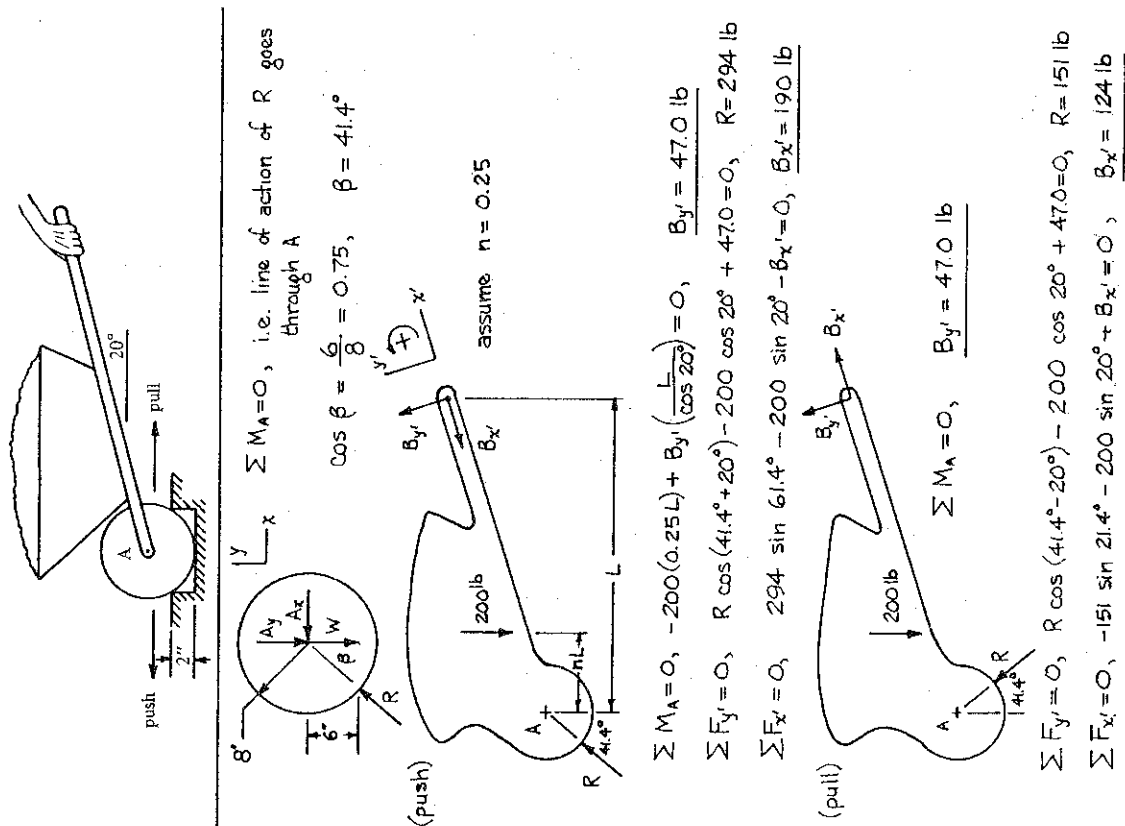 push
pull
A
20°
2"
8"
Ay
Ax
W
β
R
6"
y
x
Σ M_A = 0, i.e. line of action of R goes
through A
cos β = 6/8 = 0.75, β = 41.4°
(push)
200 lb
A
R
41.4°
nL
L
By'
Bx'
y'
x'
+
assume n = 0.25
Σ M_A = 0, -200(0.25L) + By'(L/cos 20°) = 0, By' = 47.0 lb
Σ Fy' = 0, R cos(41.4° + 20°) - 200 cos 20° + 47.0 = 0, R = 294 lb
Σ Fx' = 0, 294 sin 61.4° - 200 sin 20° - Bx' = 0, Bx' = 190 lb
(pull)
200 lb
A
R
41.4°
By'
Bx'
Σ M_A = 0, By' = 47.0 lb
Σ Fy' = 0, R cos(41.4° - 20°) - 200 cos 20° + 47.0 = 0, R = 151 lb
Σ Fx' = 0, -151 sin 21.4° - 200 sin 20° + Bx' = 0, Bx' = 124 lb